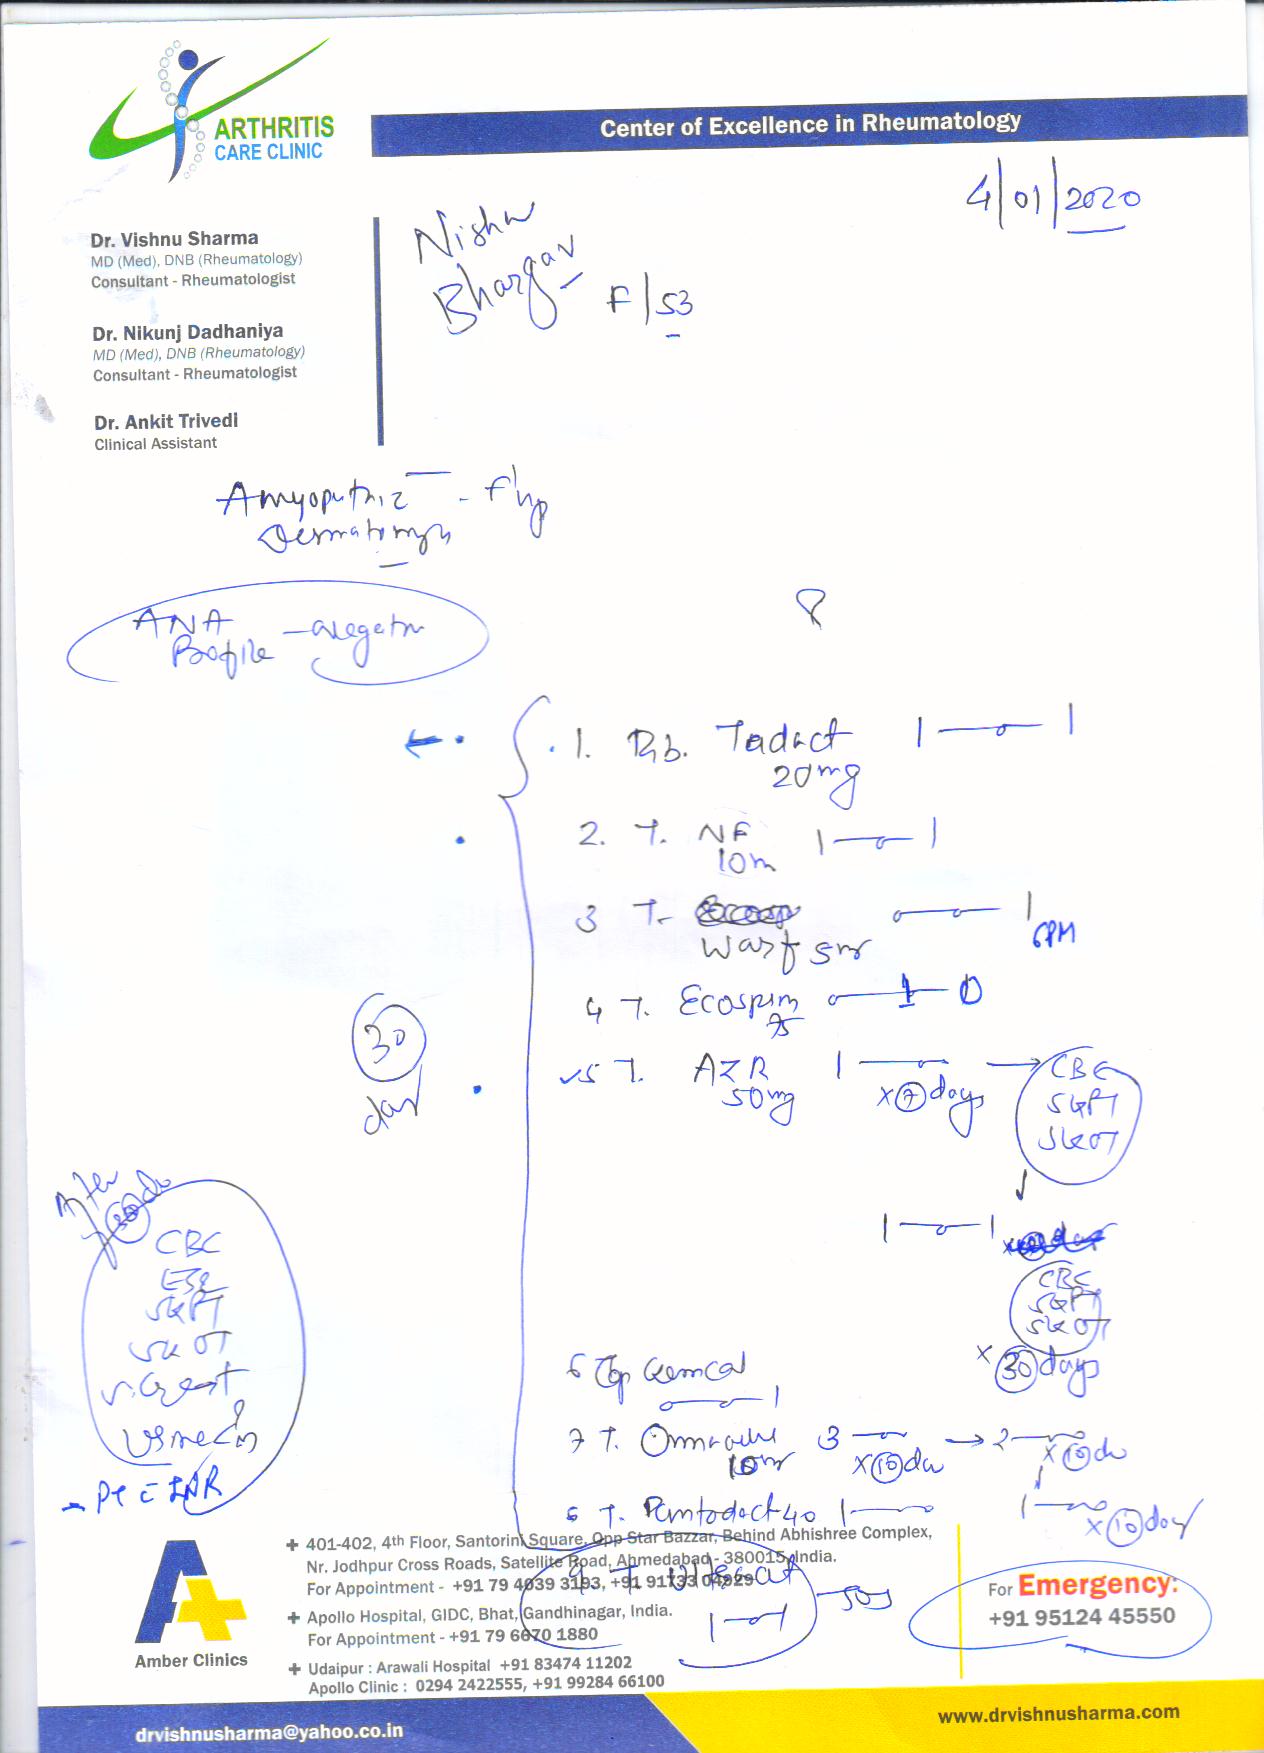 ARTHRITIS
CARE CLINIC
Center of Excellence in Rheumatology
4/01/2020
Dr. Vishnu Sharma
MD (Med), DNB (Rheumatology)
Consultant - Rheumatologist
Dr. Nikunj Dadhaniya
MD (Med), DNB (Rheumatology)
Consultant - Rheumatologist
Dr. Ankit Trivedi
Clinical Assistant
Bhargav
F/53
ANA
Profile -
1. Tab. Tadact 1 1
20mg
2. T. NF 1 1
10m
3 T.
Warf 5m 1
6PM
4 T. Ecosprin 1 0
75
5 T. AZR 1
50mg x 7 days
CBC
SGPT
SGOT
30
day
1 1
CBC
SGPT
SGOT
x 30 days
After
CBC
ESR
SGPT
SGOT
S. Creat
- PT C INR
6
1
7 T. 3 → 2
10m x 10 da x 10 da
T. Pantodact 40 1
1 x 10 day
9 T.
1 1 SOS
401-402, 4th Floor, Santorini Square, Opp Star Bazzar, Behind Abhishree Complex,
Nr. Jodhpur Cross Roads, Satellite Road, Ahmedabad - 380015, India.
For Appointment - +91 79 4039 3193, +91 91733 04929
Apollo Hospital, GIDC, Bhat, Gandhinagar, India.
For Appointment - +91 79 6670 1880
Udaipur : Arawali Hospital +91 83474 11202
Apollo Clinic : 0294 2422555, +91 99284 66100
Amber Clinics
For Emergency:
+91 95124 45550
drvishnusharma@yahoo.co.in
www.drvishnusharma.com